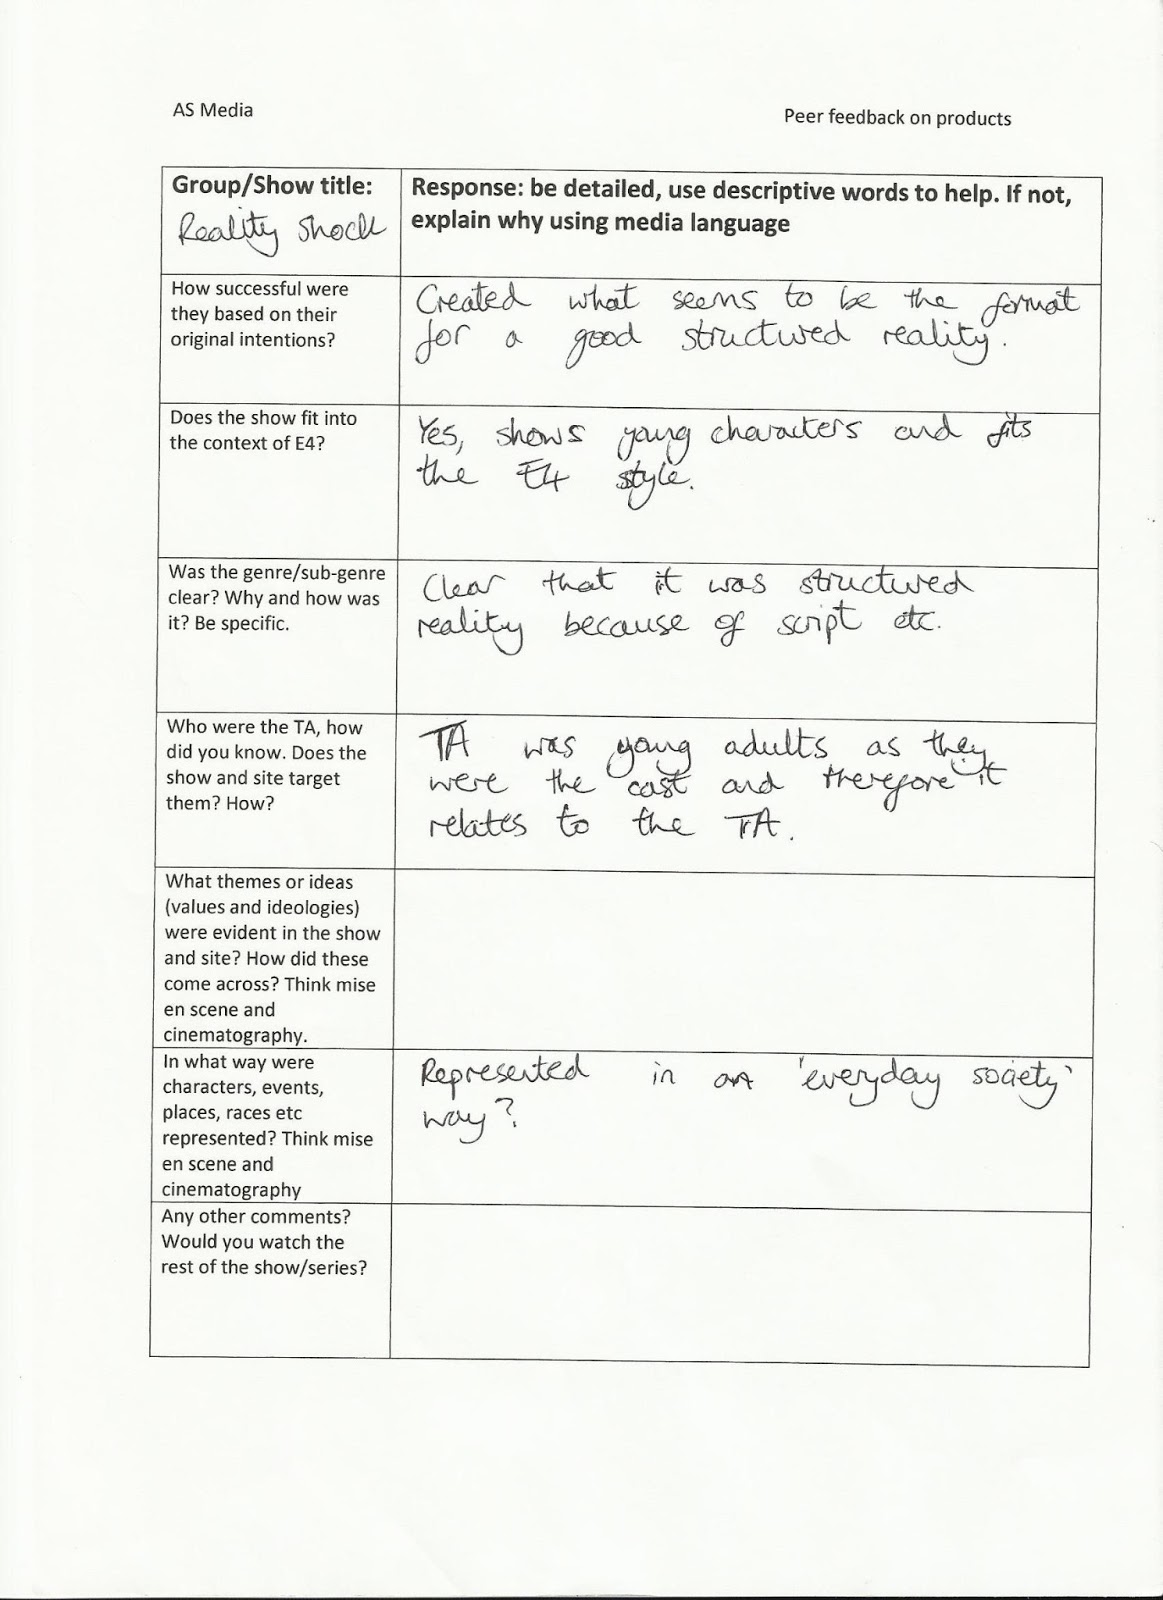 AS Media
Peer feedback on products
Group/Show title:
Reality Shock
Response: be detailed, use descriptive words to help. If not,
explain why using media language
How successful were
they based on their
original intentions?
Created what seems to be the format
for a good structured reality.
Does the show fit into
the context of E4?
Yes, shows young characters and fits
the E4 style.
Was the genre/sub-genre
clear? Why and how was
it? Be specific.
Clear that it was structured
reality because of script etc.
Who were the TA, how
did you know. Does the
show and site target
them? How?
TA was young adults as they
were the cast and therefore it
relates to the TA.
What themes or ideas
(values and ideologies)
were evident in the show
and site? How did these
come across? Think mise
en scene and
cinematography.
In what way were
characters, events,
places, races etc
represented? Think mise
en scene and
cinematography
Represented in an 'everyday society'
way?
Any other comments?
Would you watch the
rest of the show/series?